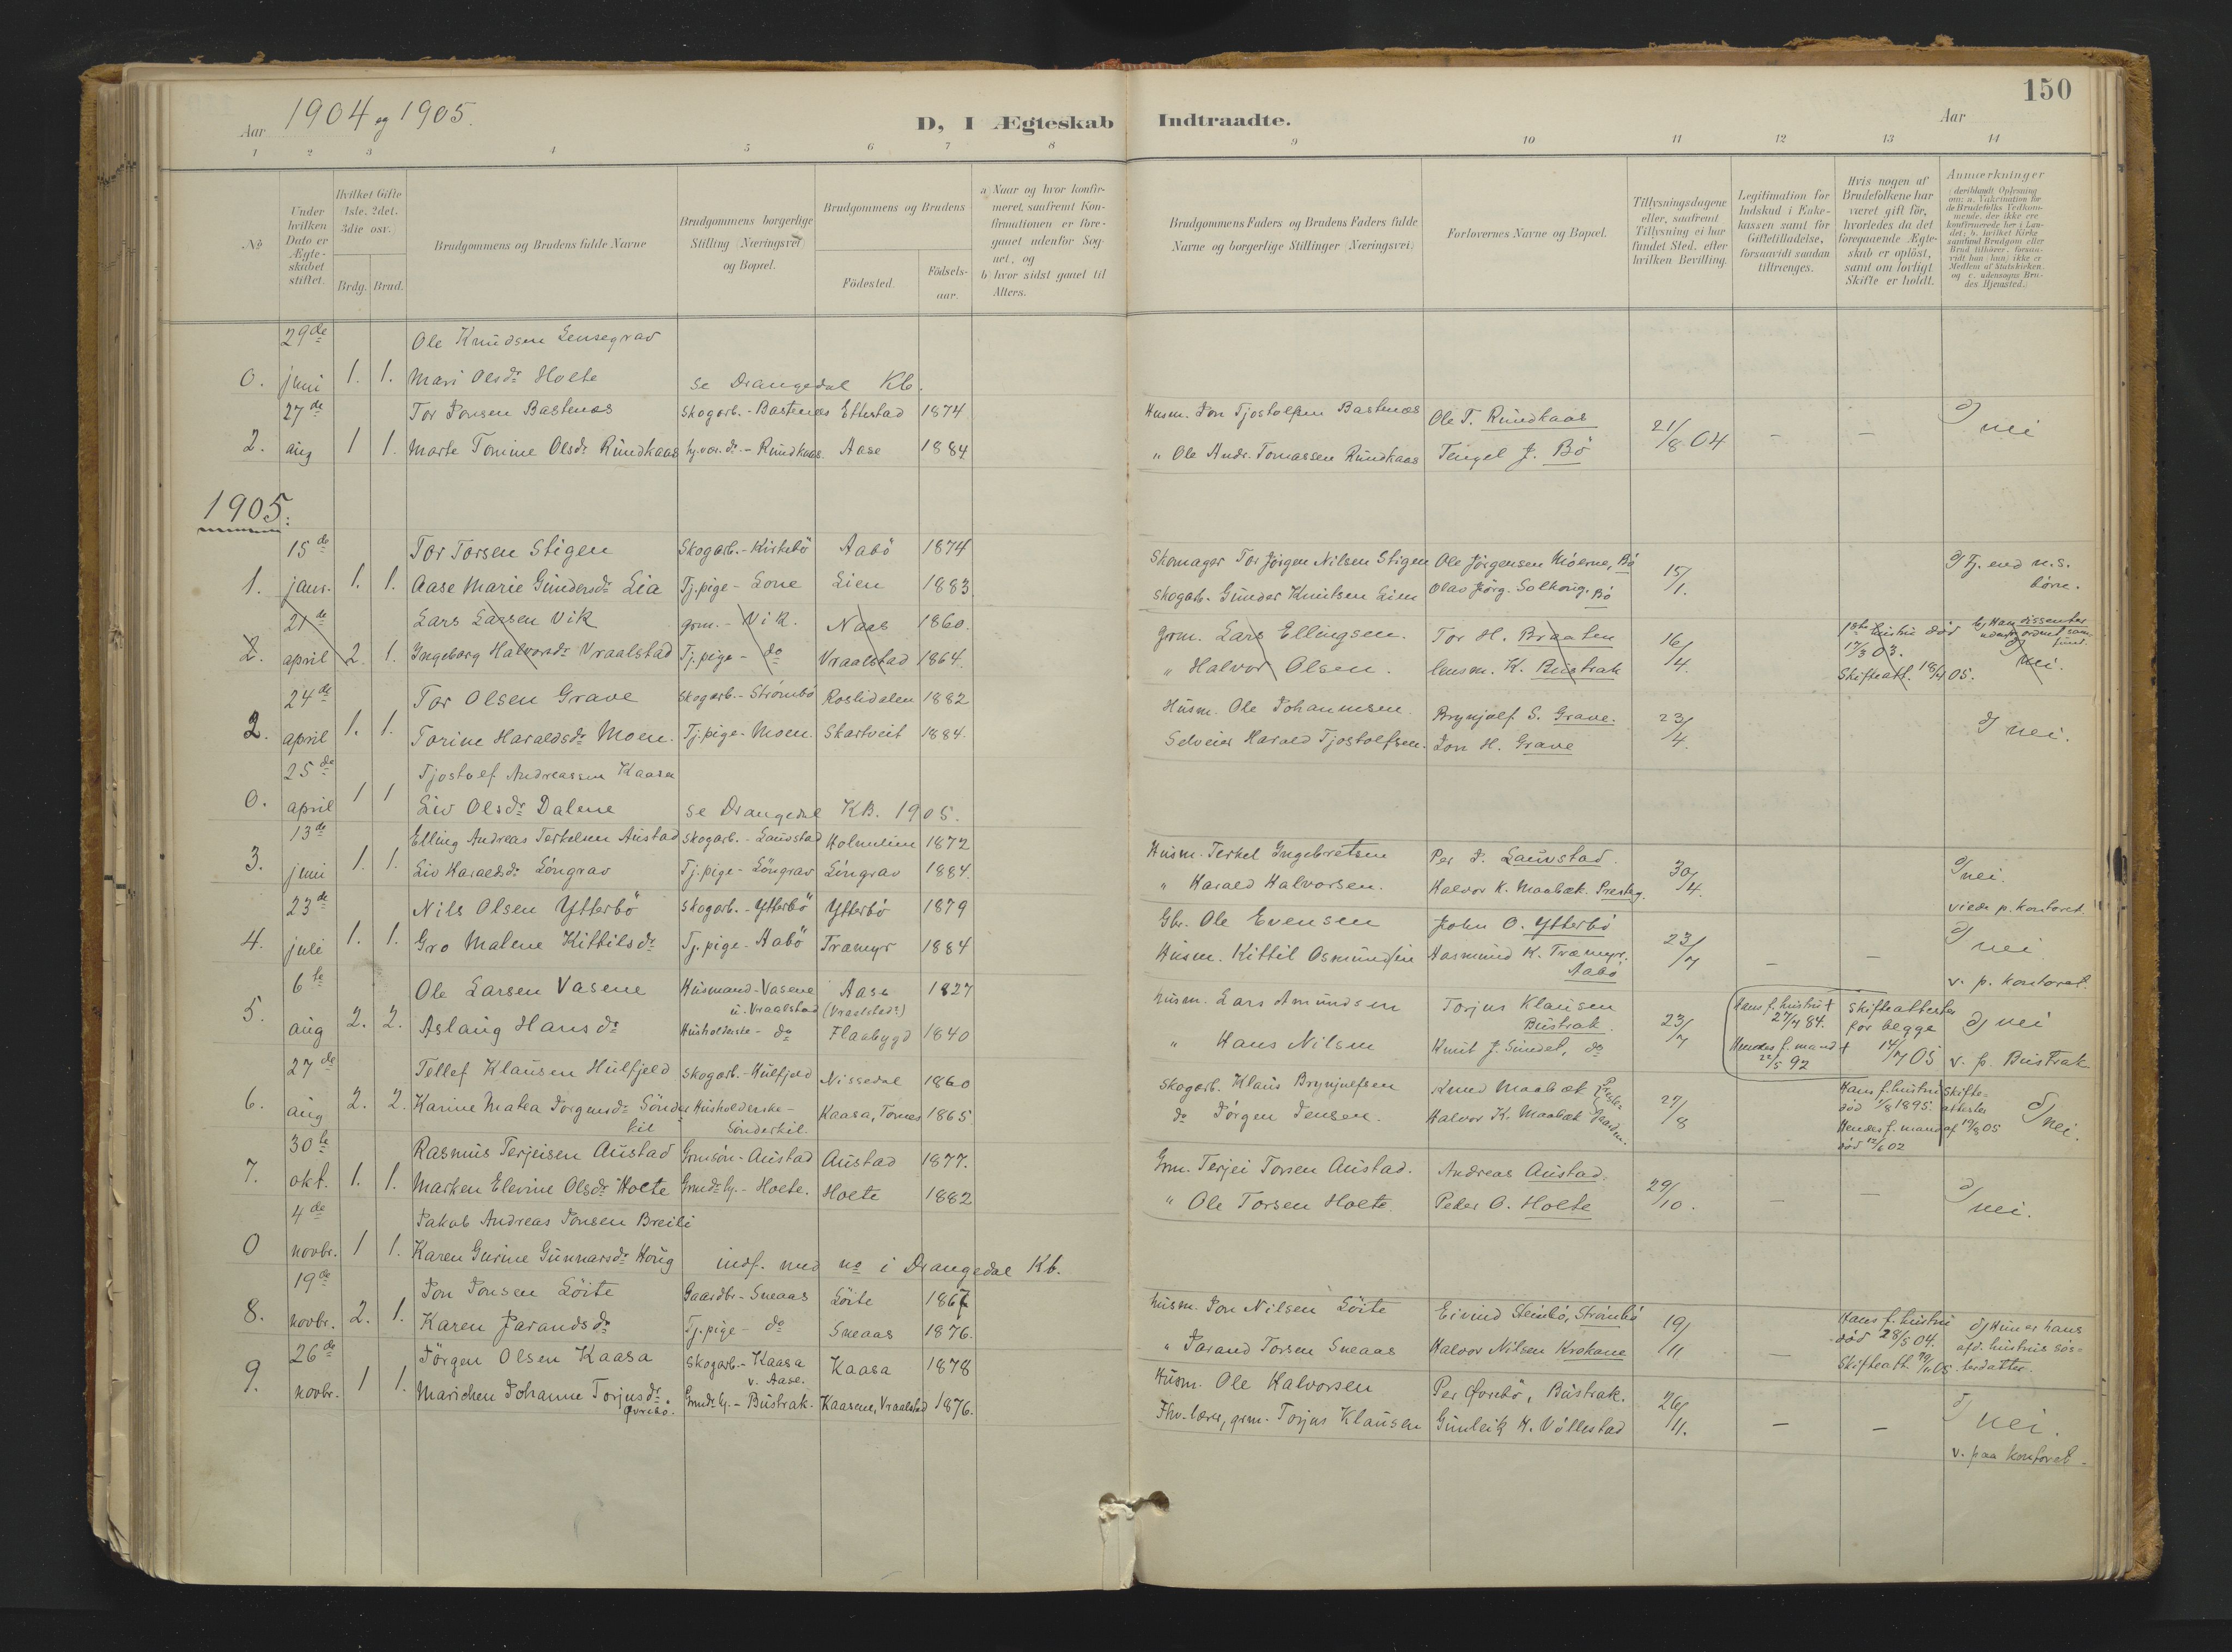 150
Aar 1904 og 1905.
D, I Ægteskab Indtraadte.
Aar
1 2 3 4 5 6 7 8 9 10 11 12 13 14
No
Under hvilken Dato er Ægteskabet stiftet.
Hvilket Gifte 1ste, 2det, 3die osv.
Brdg. Brud.
Brudgommens og Brudens fulde Navne
Brudgommens borgerlige Stilling (Næringsvei) og Bopæl.
Brudgommens og Brudens
Födested.
Födselsaar.
a) Naar og hvor konfirmeret, saafremt Konfirmationen er foregaaet udenfor Sognet, og
b) hvor sidst gaaet til Alters.
Brudgommens Faders og Brudens Faders fulde Navne og borgerlige Stillinger (Næringsvei)
Forlovernes Navne og Bopæl.
Tillysningsdagene eller, saafremt Tillysning ei har fundet Sted, efter hvilken Bevilling.
Legitimation for Indskud i Enkekassen samt for Giftetilladelse, forsaavidt saadan tiltrænges.
Hvis nogen af Brudefolkene har været gift för, hvorledes da det foregaaende Ægteskab er oplöst, samt om lovligt Skifte er holdt.
Anmærkninger
(deriblandt Oplysning om: a. Vakcination for de Brudefolks Vedkommende, der ikke ere konfirmerede her i Landet; b. hvilket Kirkesamfund Brudgom eller Brud tilhörer, forsaavidt han (hun) ikke er Medlem af Statskirken, og c. udensogns Brudes Hjemsted.)
29de Ole Knudsen Lensegrav
0. juni 1. 1. Mari Olsdr Holte se Drangedal Kb.
27de Tor Jonsen Bastenæs Skogarb. - Bastenæs Eftestad 1874 Husm. Jon Tjostolfsen Bastenæs Ole T. Rundkaas
2. aug 1 1. Marte Tomine Olsdr Rundkaas hj.vær. dr. - Rundkaas Aase 1884 " Ole Andr. Tomassen Rundkaas Tengel J. Bö 21/8 04 - - d/ nei
1905:
15de Tor Torsen Stigen Skogarb. - Kirkebö Aabö 1874 Skomager Tor Jörgen Nilsen Stigen Ole Jörgensen Moerne, Bö
1. janr. 1. 1. Aase Marie Gundersdr Lia Tj.pige - Lone Lien 1883. Skogarb. Gunder Knutsen Lien Olav Jörg. Solhoug, Bö 15/1. d/ Tj. end n.s. börn.
21de Lars Larsen Vik grm. - Vik. Naas 1860. Grm. Lars Ellingsen. Tor H. Braaten
2. april 2. 1. Ingeborg Halvorsdr Vraalstad Tj.pige - do Vraalstad 1864. " Halvor Olsen. lensm. K. Bustrak 16/4. 1ste hustru död 17/3 03. Skifteatt. 18/4 05. b) Han dissenter udenfor ordnet samfund. d/ nei.
24de Tor Olsen Grave Skogarb. - Strömbö Roslidalen 1882 Husm. Ole Johannsen. Brynjolf S. Grave.
2. april 1. 1. Torine Haraldsdr Moen. Tj.pige - Moen. Skartveit 1884. Selveier Harald Tjostolfsen. Jon H. Grave 23/4. d/ nei.
25de Tjostolf Andreassen Kaasa
0. april 1 1 Liv Olsdr Dalene se Drangedal KB. 1905.
13de Elling Andreas Terkelsen Austad Skogarb. - Lauvstad Holmlien 1872 Husm. Terkel Ingebretsen Per J. Lauvstad.
3. juni 1. 1. Liv Haraldsdr Löngrav Tj.pige - Löngrav Löngrav 1884. " Harald Halvorsen. Halvor K. Maabæk. Presteg. 30/4. d/ nei. viede p. kontoret.
23de Nils Olsen Ytterbö Skogarb. - Ytterbö Ytterbö 1879 Gbr. Ole Evensen John O. Ytterbö
4. juli 1. 1. Gro Malene Kittilsdr Tj.pige - Aabö Tramyr 1884 Husm. Kittil Osmundsen Aasmund K. Tramyr. Aabö 23/7 - - d/ nei v. p. kontoret.
6te Ole Larsen Vasene Husmand - Vasene u. Vraalstad Aase (Vraalstad?) 1827 husm. Lars Amundsen Torjus Klausen Bustrak.
5. aug 2. 2. Aslaug Hansdr Husholderske - do Flaabygd 1840 " Hans Nilsen Knut J. Sundet, do 23/7 Hans f. hustru † 27/4 84. Hendes f. mand † 22/5 92 Skifteattester for begge 14/7 05 d/ nei v. p. Bustrak
27de Tellef Klausen Hulfjeld Skogarb. - Hulfjeld Nissedal 1860 Skogarb. Klaus Brynjulfsen Knud Maabæk
6. aug 2. 2. Karine Matea Jörgensdr Sönderkil Husholderske - Sönderkil. Kaasa, Tornes 1865. do Jörgen Jensen. Halvor K. Maabæk 27/8 Hans f. hustru död 1/8 1895. Skifteattester Hendes f. mand af 19/8 05 död 12/6 02 d/ nei.
30te Rasmus Terjeisen Austad Grmsön - Austad Austad 1877. Grm. Terjei Torsen Austad. Andreas Austad.
7. okt. 1. 1. Marken Elevine Olsdr Holte Grmdr hj. - Holte. Holte 1882 " Ole Torsen Holte. Peder O. Holte 29/10. - - d/ nei.
4de Jakob Andreas Jonsen Breili
0 novbr. 1 1. Karen Gurine Gunnarsdr Houg indf. med no i Drangedal Kb.
19de Jon Jonsen Löite Gaardbr. - Sneaas Löite 1867 husm. Jon Nilsen Löite Eivind Stenbö, Strömbö
8. novbr. 2. 1. Karen Jarandsdr Tj.pige - do Sneaas 1876. " Jarand Torsen Sneaas Halvor Nilsen Krokane 19/11 - Hans f. hustru död 28/5 04. Skifteatt. 05. d/ Hun er hans afd. hustrus sösterdatter.
26de Jörgen Olsen Kaasa Skogarb. - Kaasa v. Aase. Kaasa 1878 Husm. Ole Halvorsen Per Øvrebö, Bustrak.
9. novbr. 1 1. Marichen Johanne Torjusdr Øvrebö. Grmdr hj. - Bustrak. Kaasene, Vraalstad 1876. Fhv. lærer, grm. Torjus Klausen Gunleik H. Völlestad 26/11. - - d/ nei. v. paa kontoret.